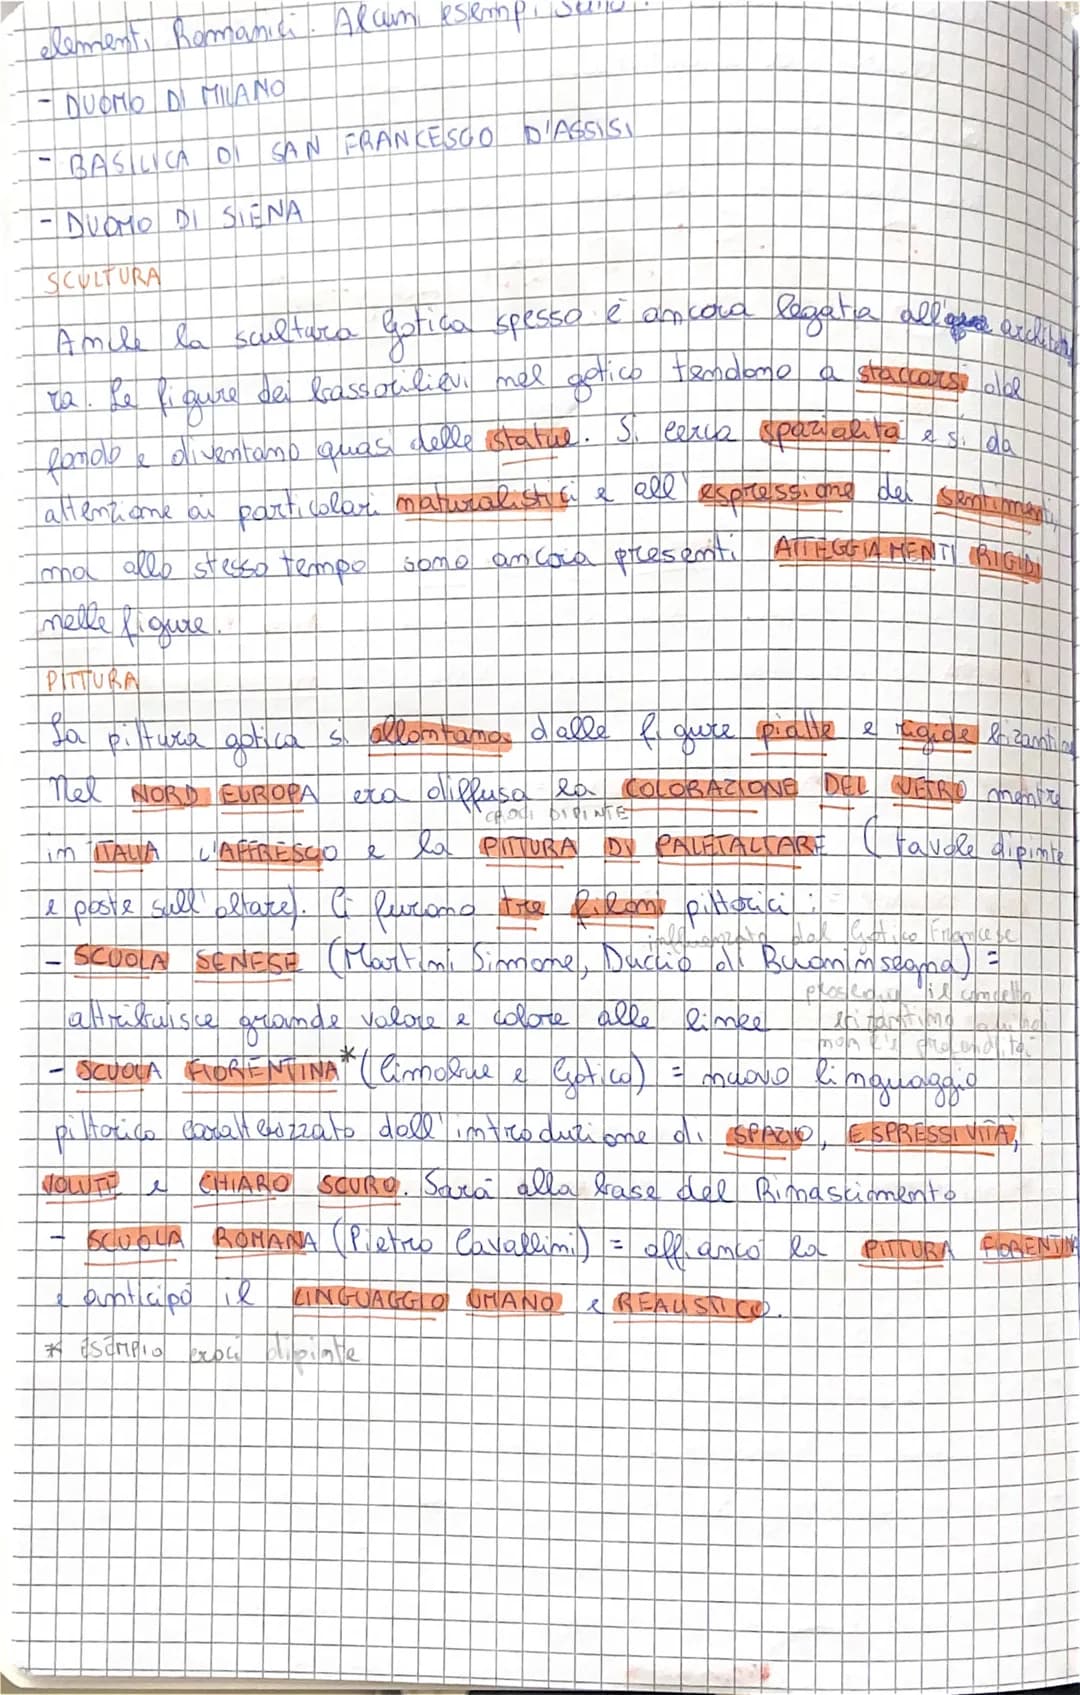 elementi Romanici. Alcuni esempi sono:
- DUOMO DI MILANO
- BASILICA DI SAN FRANCESCO D'ASSISI
- DUOMO DI SIENA
SCULTURA
Anche la scultura gotica spesso è ancora legata all' architettu
ra. Le figure dei bassorilievi nel gotico tendono a staccarsi dal
fondo e diventano quasi delle statue. Si cerca spazialità e si da
attenzione ai particolari naturalistici e all'espressione dei sentimenti,
ma allo stesso tempo sono ancora presenti ATTEGGIAMENTI RIGIDI
nelle figure.
PITTURA
La pittura gotica si allontana dalle figure piatte e rigide bizantine
Nel NORD EUROPA era diffusa la COLORAZIONE DEL VETRO mentre
CROCI DIPINTE
in ITALIA L'AFFRESCO e la PITTURA DI PALETALTARE (tavole dipinte
e poste sull'altare). Ci furono tre filoni pittorici:
influenzata dal Gotico Francese
- SCUOLA SENESE (Martini Simone, Duccio di Buoninsegna) =
prosegue il concetto
attribuisce grande valore e colore alle linee
bizantino quindi
non c'è profondità
- SCUOLA FIORENTINA* (Cimabue e Gotico) = nuovo linguaggio
pittorico caratterizzato dall'introduzione di SPAZIO, ESPRESSIVITÀ,
VOLUTE e CHIARO SCURO. Sarà alla base del Rinascimento
- SCUOLA ROMANA (Pietro Cavallini) = affiancò la PITTURA FIORENTINA
e anticipò il LINGUAGGIO UMANO e REALISTICO.
* ESEMPIO croci dipinte